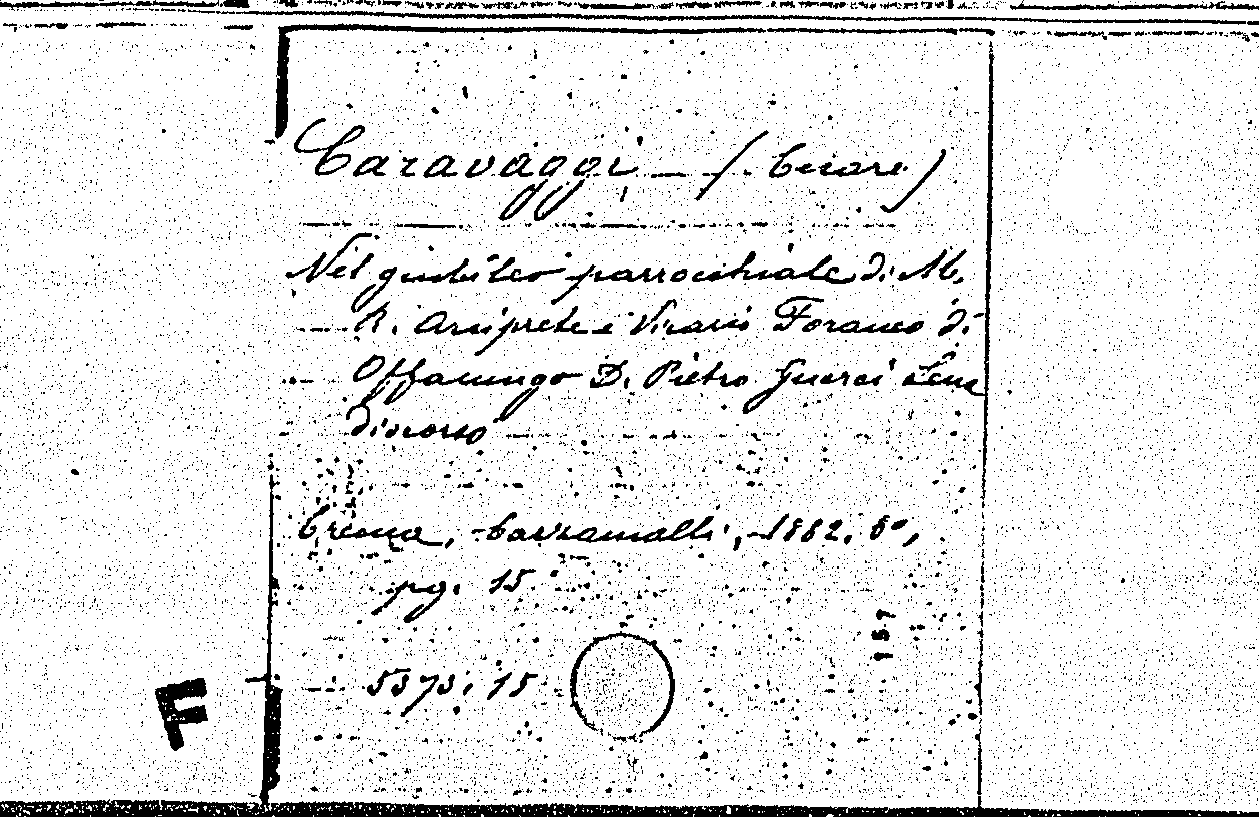 Caravaggi (Cesare)
Nel giubileo parrocchiale di M.
R. Arciprete e Vicario Foraneo di
Offanengo D. Pietro Guerci Lena
discorso
Crema, Cazzamalli, 1882. 8º,
pg. 15
157
5373. 15
F